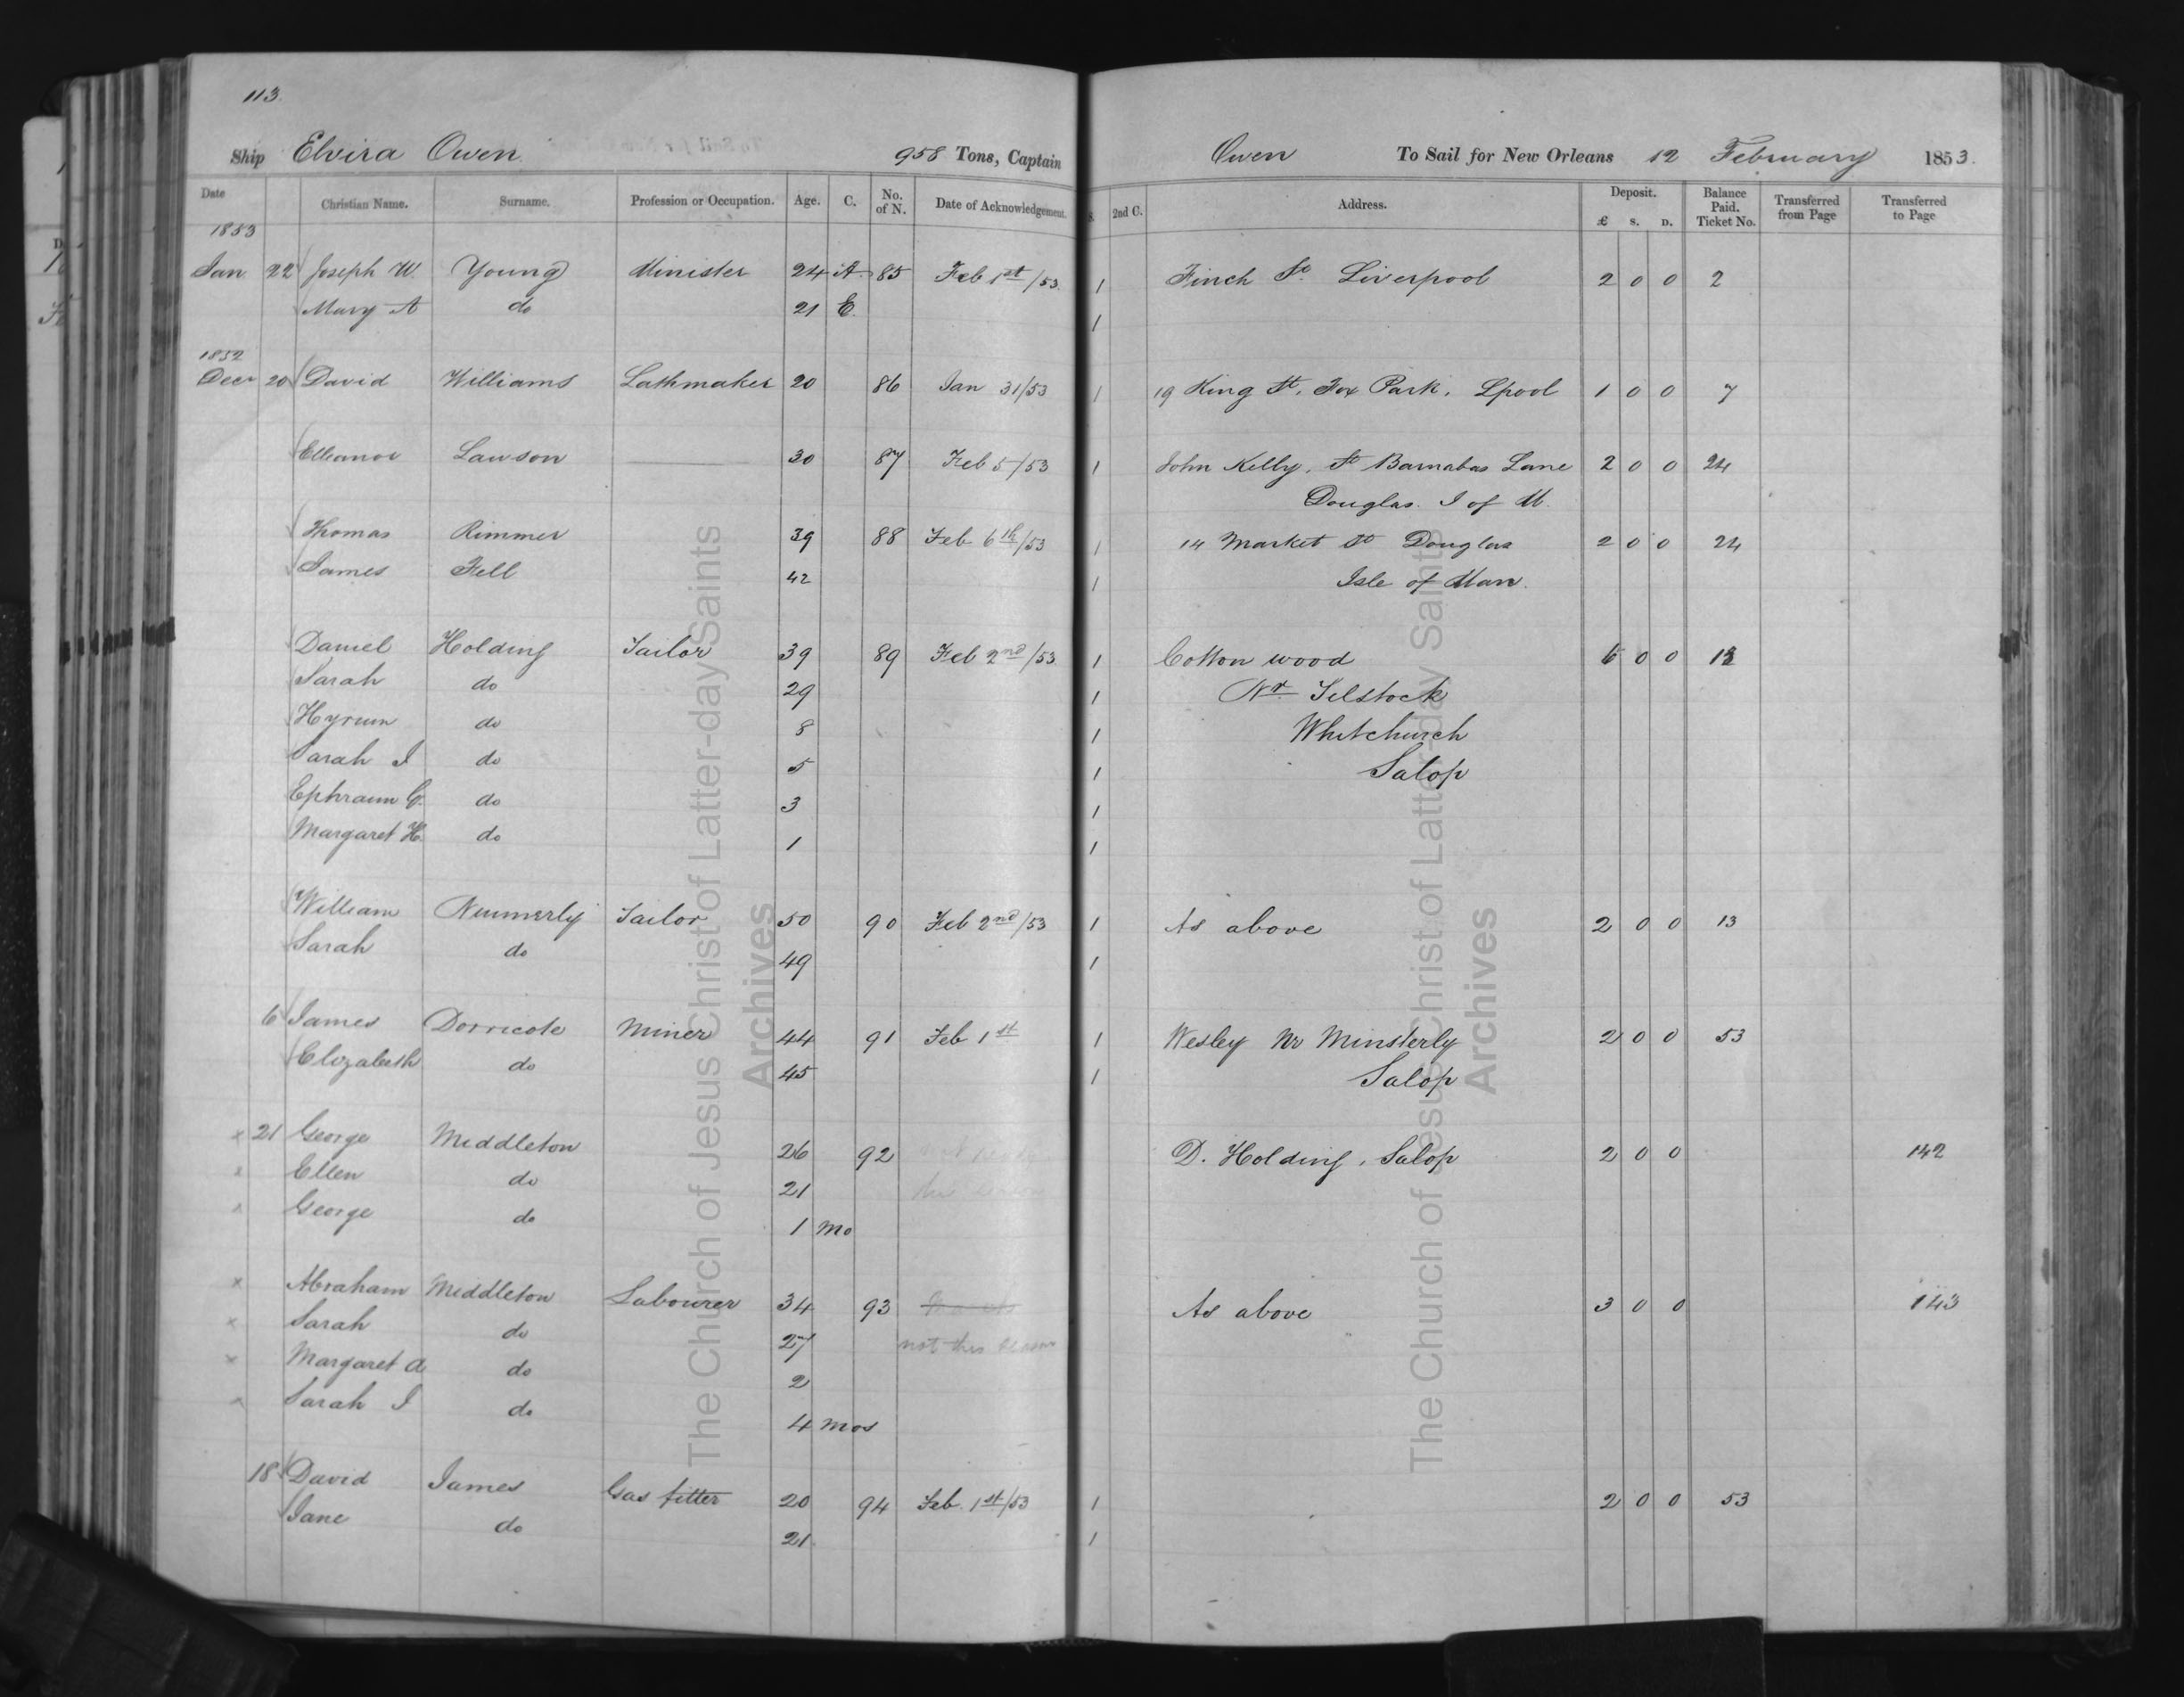 113.
Ship Elvira Owen. 958 Tons, Captain Owen To Sail for New Orleans 12 February 1853.
Date Christian Name. Surname. Profession or Occupation. Age. C. No. of N. Date of Acknowledgement. S. 2nd C. Address. Deposit. £ S. D. Balance Paid. Ticket No. Transferred from Page Transferred to Page
1853
Jan 22 Joseph W. Young Minister 24 A. 85 Feb 1st/53. 1 Finch St. Liverpool 2 0 0 2
Mary A do 21 E. 1
1852
Decr 20 David Williams Lathmaker 20 86 Jan 31/53 1 19 King St, Fox Park, Lpool 1 0 0 7
Elleanor Lawson 30 87 Feb 5/53 1 John Kelly, St Barnabas Lane 2 0 0 24
Douglas. I of M.
Thomas Rimmer 39 88 Feb 6th/53 1 14 Market St Douglas 2 0 0 24
James Fell 42 1 Isle of Man.
Daniel Holding Tailor 39 89 Feb 2nd/53 1 Cotton wood 6 0 0 13
Sarah do 29 1 Nr Tilstock
Hyrum do 8 1 Whitchurch
Sarah J do 5 1 Salop
Ephraim G. do 3 1
Margaret H. do 1 1
William Nummerly Tailor 50 90 Feb 2nd/53 1 As above 2 0 0 13
Sarah do 49 1
6 James Dorricote Miner 44 91 Feb 1st 1 Wesley Nr Minsterly 2 0 0 53
Elizabeth do 45 1 Salop
x 21 George Middleton 26 92 D. Holding, Salop 2 0 0 142
x Ellen do 21
x George do 1 mo
x Abraham Middleton Labourer 34 93 As above 3 0 0 143
x Sarah do 27 not this season
x Margaret A do 2
x Sarah J do 4 mos
18 David James Gas fitter 20 94 Feb. 1st/53 1 2 0 0 53
Jane do 21 1
The Church of Jesus Christ of Latter-day Saints
Archives
The Church of Jesus Christ of Latter-day Saints
Archives